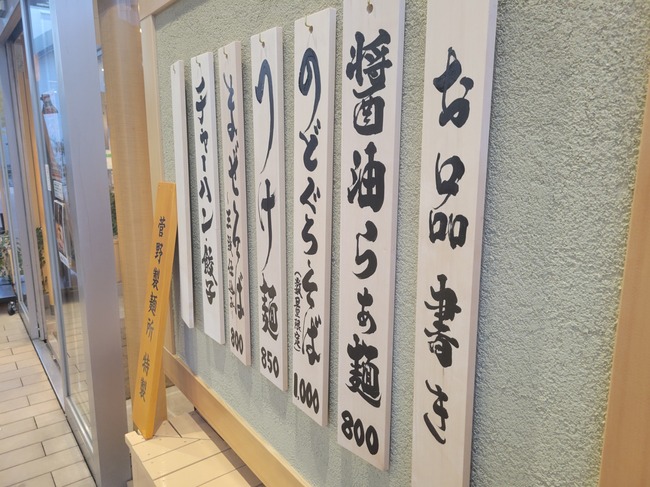 お品書き
醤油らぁ麺 800
のどぐろそば (数量限定) 1,000
つけ麺 850
まぜそば 800
チャーハン・餃子
菅野製麺所 特製